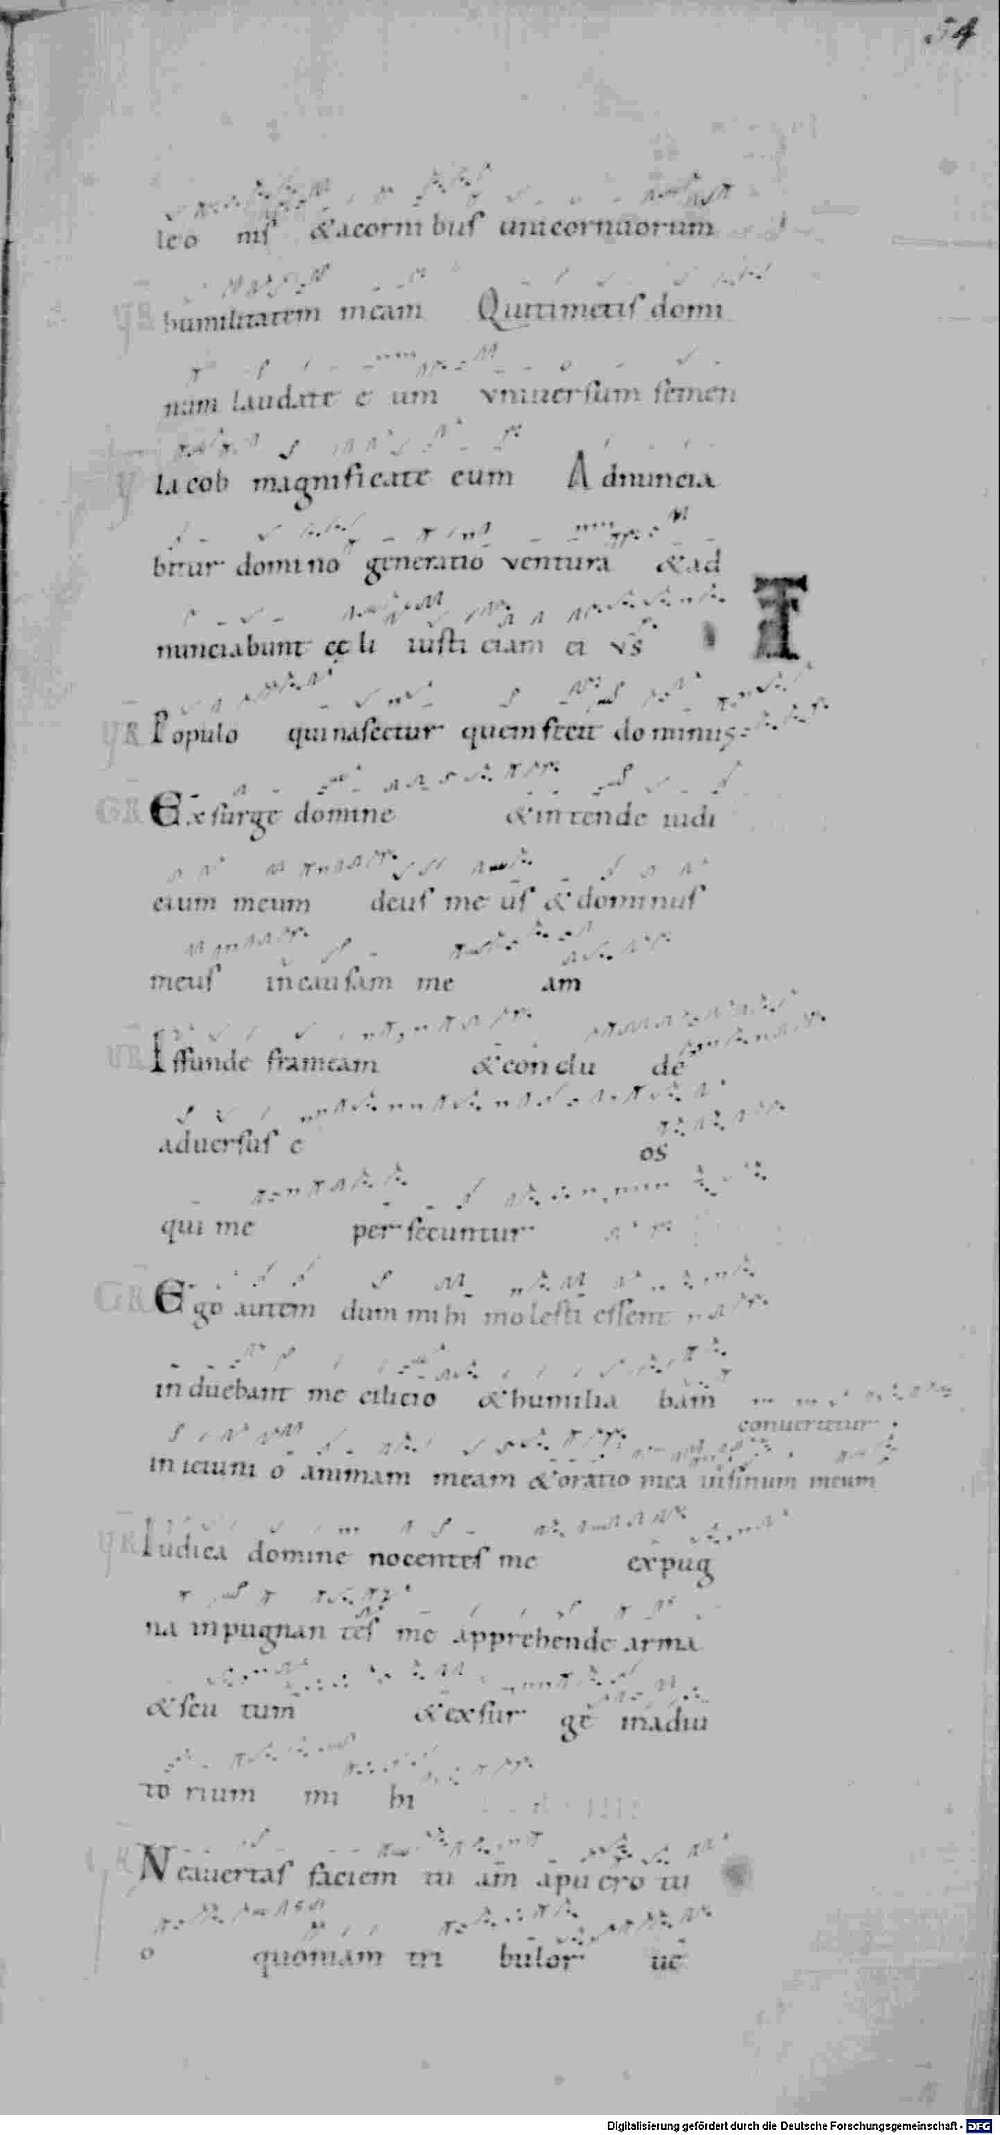 54
leo nis & acornibus unicornuorum
VR humilitatem meam Quitimetis domi
num laudate eum universum semen
V Iacob magnificate eum Adnuncia
bitur domino generatio ventura & ad
nunciabunt cęli iusticiam eius
VR Populo qui nascetur quem fecit dominus
GR Exsurge domine & intende iudi
cium meum deus meus & dominus
meus in causam meam
VR Effunde frameam & conclude
adversus eos
qui me persecuntur
GR Ego autem dum mihi molesti essent
induebam me cilicio & humiliabam
convertetur
in ieiunio animam meam & oratio mea in sinum meum
VR Iudica domine nocentes me expug
na inpugnantes me apprehende arma
& scutum & exsurge in adiu
torium mihi
Ne avertas faciem tuam a puero tu
o quoniam tribulor ve
Digitalisierung gefördert durch die Deutsche Forschungsgemeinschaft - DFG